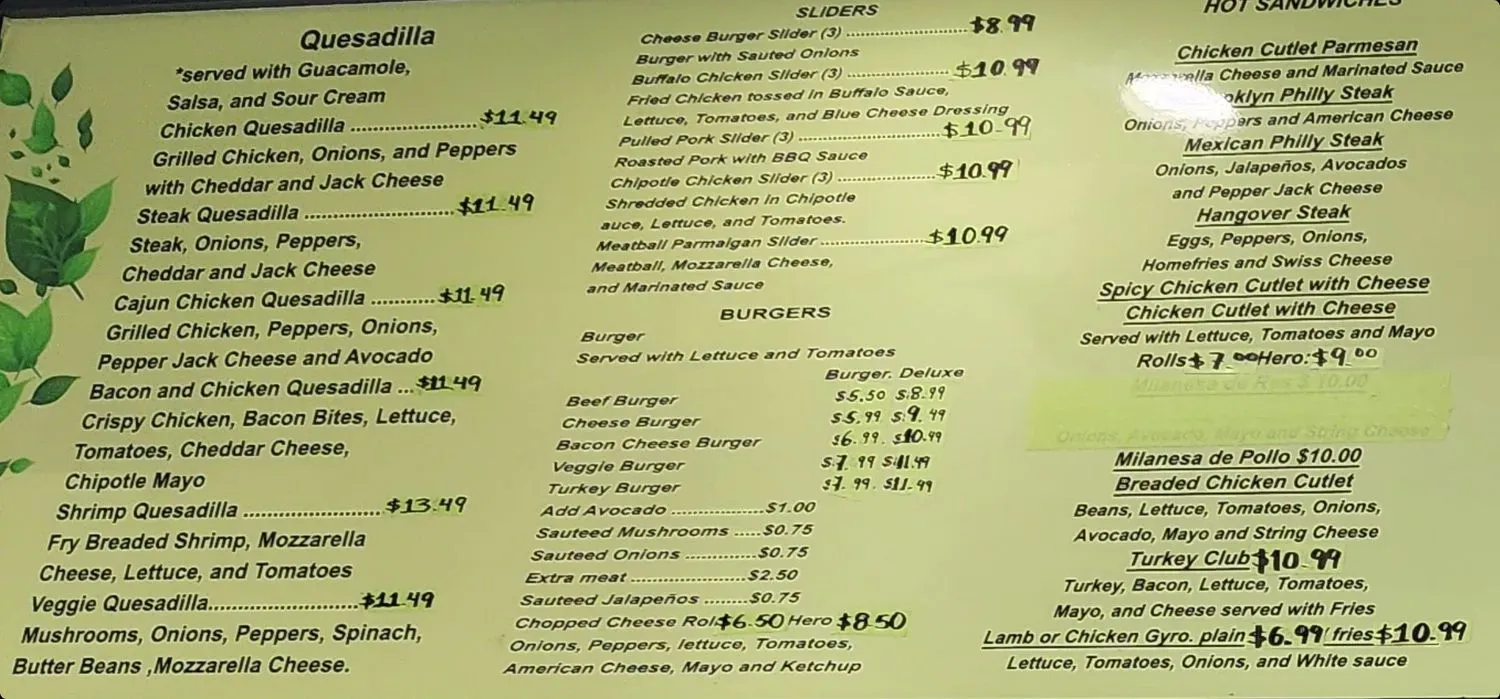 Quesadilla
*served with Guacamole,
Salsa, and Sour Cream
Chicken Quesadilla ..................... $11.49
Grilled Chicken, Onions, and Peppers
with Cheddar and Jack Cheese
Steak Quesadilla ......................... $11.49
Steak, Onions, Peppers,
Cheddar and Jack Cheese
Cajun Chicken Quesadilla ........... $11.49
Grilled Chicken, Peppers, Onions,
Pepper Jack Cheese and Avocado
Bacon and Chicken Quesadilla ... $11.49
Crispy Chicken, Bacon Bites, Lettuce,
Tomatoes, Cheddar Cheese,
Chipotle Mayo
Shrimp Quesadilla ....................... $13.49
Fry Breaded Shrimp, Mozzarella
Cheese, Lettuce, and Tomatoes
Veggie Quesadilla.......................... $11.49
Mushrooms, Onions, Peppers, Spinach,
Butter Beans ,Mozzarella Cheese.
SLIDERS
Cheese Burger Slider (3) .......................... $8.99
Burger with Sauted Onions
Buffalo Chicken Slider (3) ...................... $10.99
Fried Chicken tossed in Buffalo Sauce,
Lettuce, Tomatoes, and Blue Cheese Dressing
Pulled Pork Slider (3) .............................. $10.99
Roasted Pork with BBQ Sauce
Chipotle Chicken Slider (3) ..................... $10.99
Shredded Chicken in Chipotle
auce, Lettuce, and Tomatoes.
Meatball Parmaigan Slider ....................... $10.99
Meatball, Mozzarella Cheese,
and Marinated Sauce
BURGERS
Burger
Served with Lettuce and Tomatoes
Burger. Deluxe
Beef Burger $5.50 $8.99
Cheese Burger $5.99 $9.49
Bacon Cheese Burger $6.99. $10.49
Veggie Burger $7.99 $11.49
Turkey Burger $7.99. $11.49
Add Avocado ..................$1.00
Sauteed Mushrooms .....$0.75
Sauteed Onions .............$0.75
Extra meat ......................$2.50
Sauteed Jalapeños ........$0.75
Chopped Cheese Rol $6.50 Hero $8.50
Onions, Peppers, lettuce, Tomatoes,
American Cheese, Mayo and Ketchup
HOT SANDWICHES
Chicken Cutlet Parmesan
Mozzarella Cheese and Marinated Sauce
oklyn Philly Steak
Onions, Peppers and American Cheese
Mexican Philly Steak
Onions, Jalapeños, Avocados
and Pepper Jack Cheese
Hangover Steak
Eggs, Peppers, Onions,
Homefries and Swiss Cheese
Spicy Chicken Cutlet with Cheese
Chicken Cutlet with Cheese
Served with Lettuce, Tomatoes and Mayo
Rolls $7.00 Hero: $9.00
Milanesa de Res $ 10.00
Onions, Avocado, Mayo and String Cheese
Milanesa de Pollo $10.00
Breaded Chicken Cutlet
Beans, Lettuce, Tomatoes, Onions,
Avocado, Mayo and String Cheese
Turkey Club $10.99
Turkey, Bacon, Lettuce, Tomatoes,
Mayo, and Cheese served with Fries
Lamb or Chicken Gyro. plain $6.99/ fries $10.99
Lettuce, Tomatoes, Onions, and White sauce